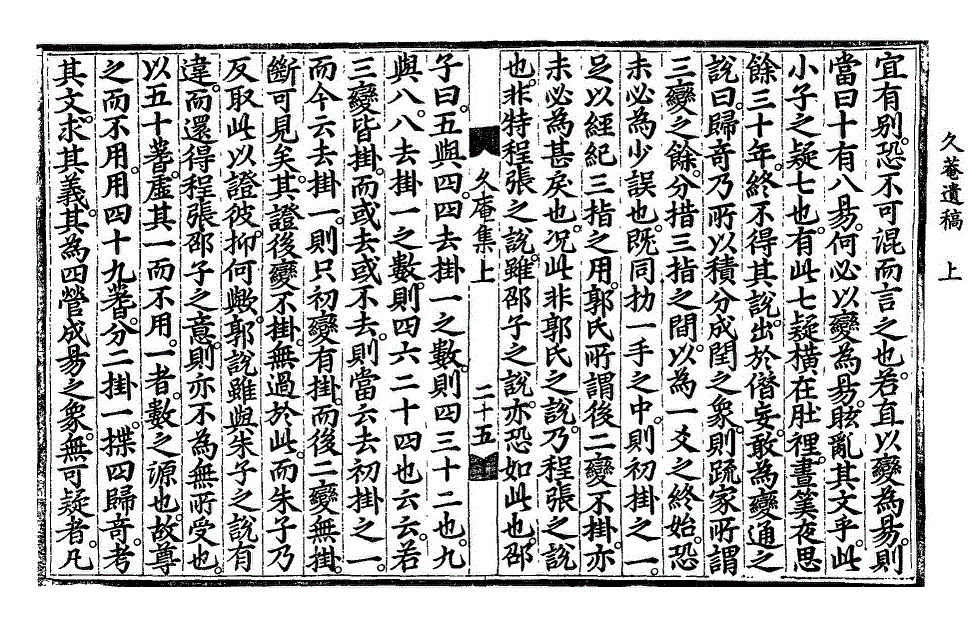 久菴遺稿 上
宜有別。恐不可混而言之也。若直以變為易。則
當曰十有八易。何必以變為易。眩亂其文乎。此
小子之疑七也。有此七疑。横在肚裡。晝筭夜思
餘三十年。終不得其說。出於僭妄。敢為變通之
說曰。歸奇乃所以積分成閏之象。則疏家所謂
三變之餘。分措三指之間。以為一爻之終始。恐
未必為少誤也。旣同扐一手之中。則初掛之一。
足以經紀三指之用。郭氏所謂後二變不掛。亦
未必為甚戾也。况此非郭氏之說。乃程張之說
也。非特程張之說。雖邵子之說。亦恐如此也。邵
久庵集上 二十五
子曰。五與四。四去掛一之數。則四三十二也。九
與八。八去掛一之數。則四六二十四也云云。若
三變皆掛。而或去或不去。則當云去初掛之一。
而今云去掛一。則只初變有掛。而後二變無掛。
斷可見矣。其證後變不掛。無過於此。而朱子乃
反取此以證彼。抑何歟。郭說雖與朱子之說有
違。而還得程張邵子之意。則亦不為無所受也。
以五十蓍。虛其一而不用。一者。數之源也。故尊
之而不用。用四十九蓍。分二掛一。揲四歸奇。考
其文。求其義。其為四營成易之象。無可疑者。凡